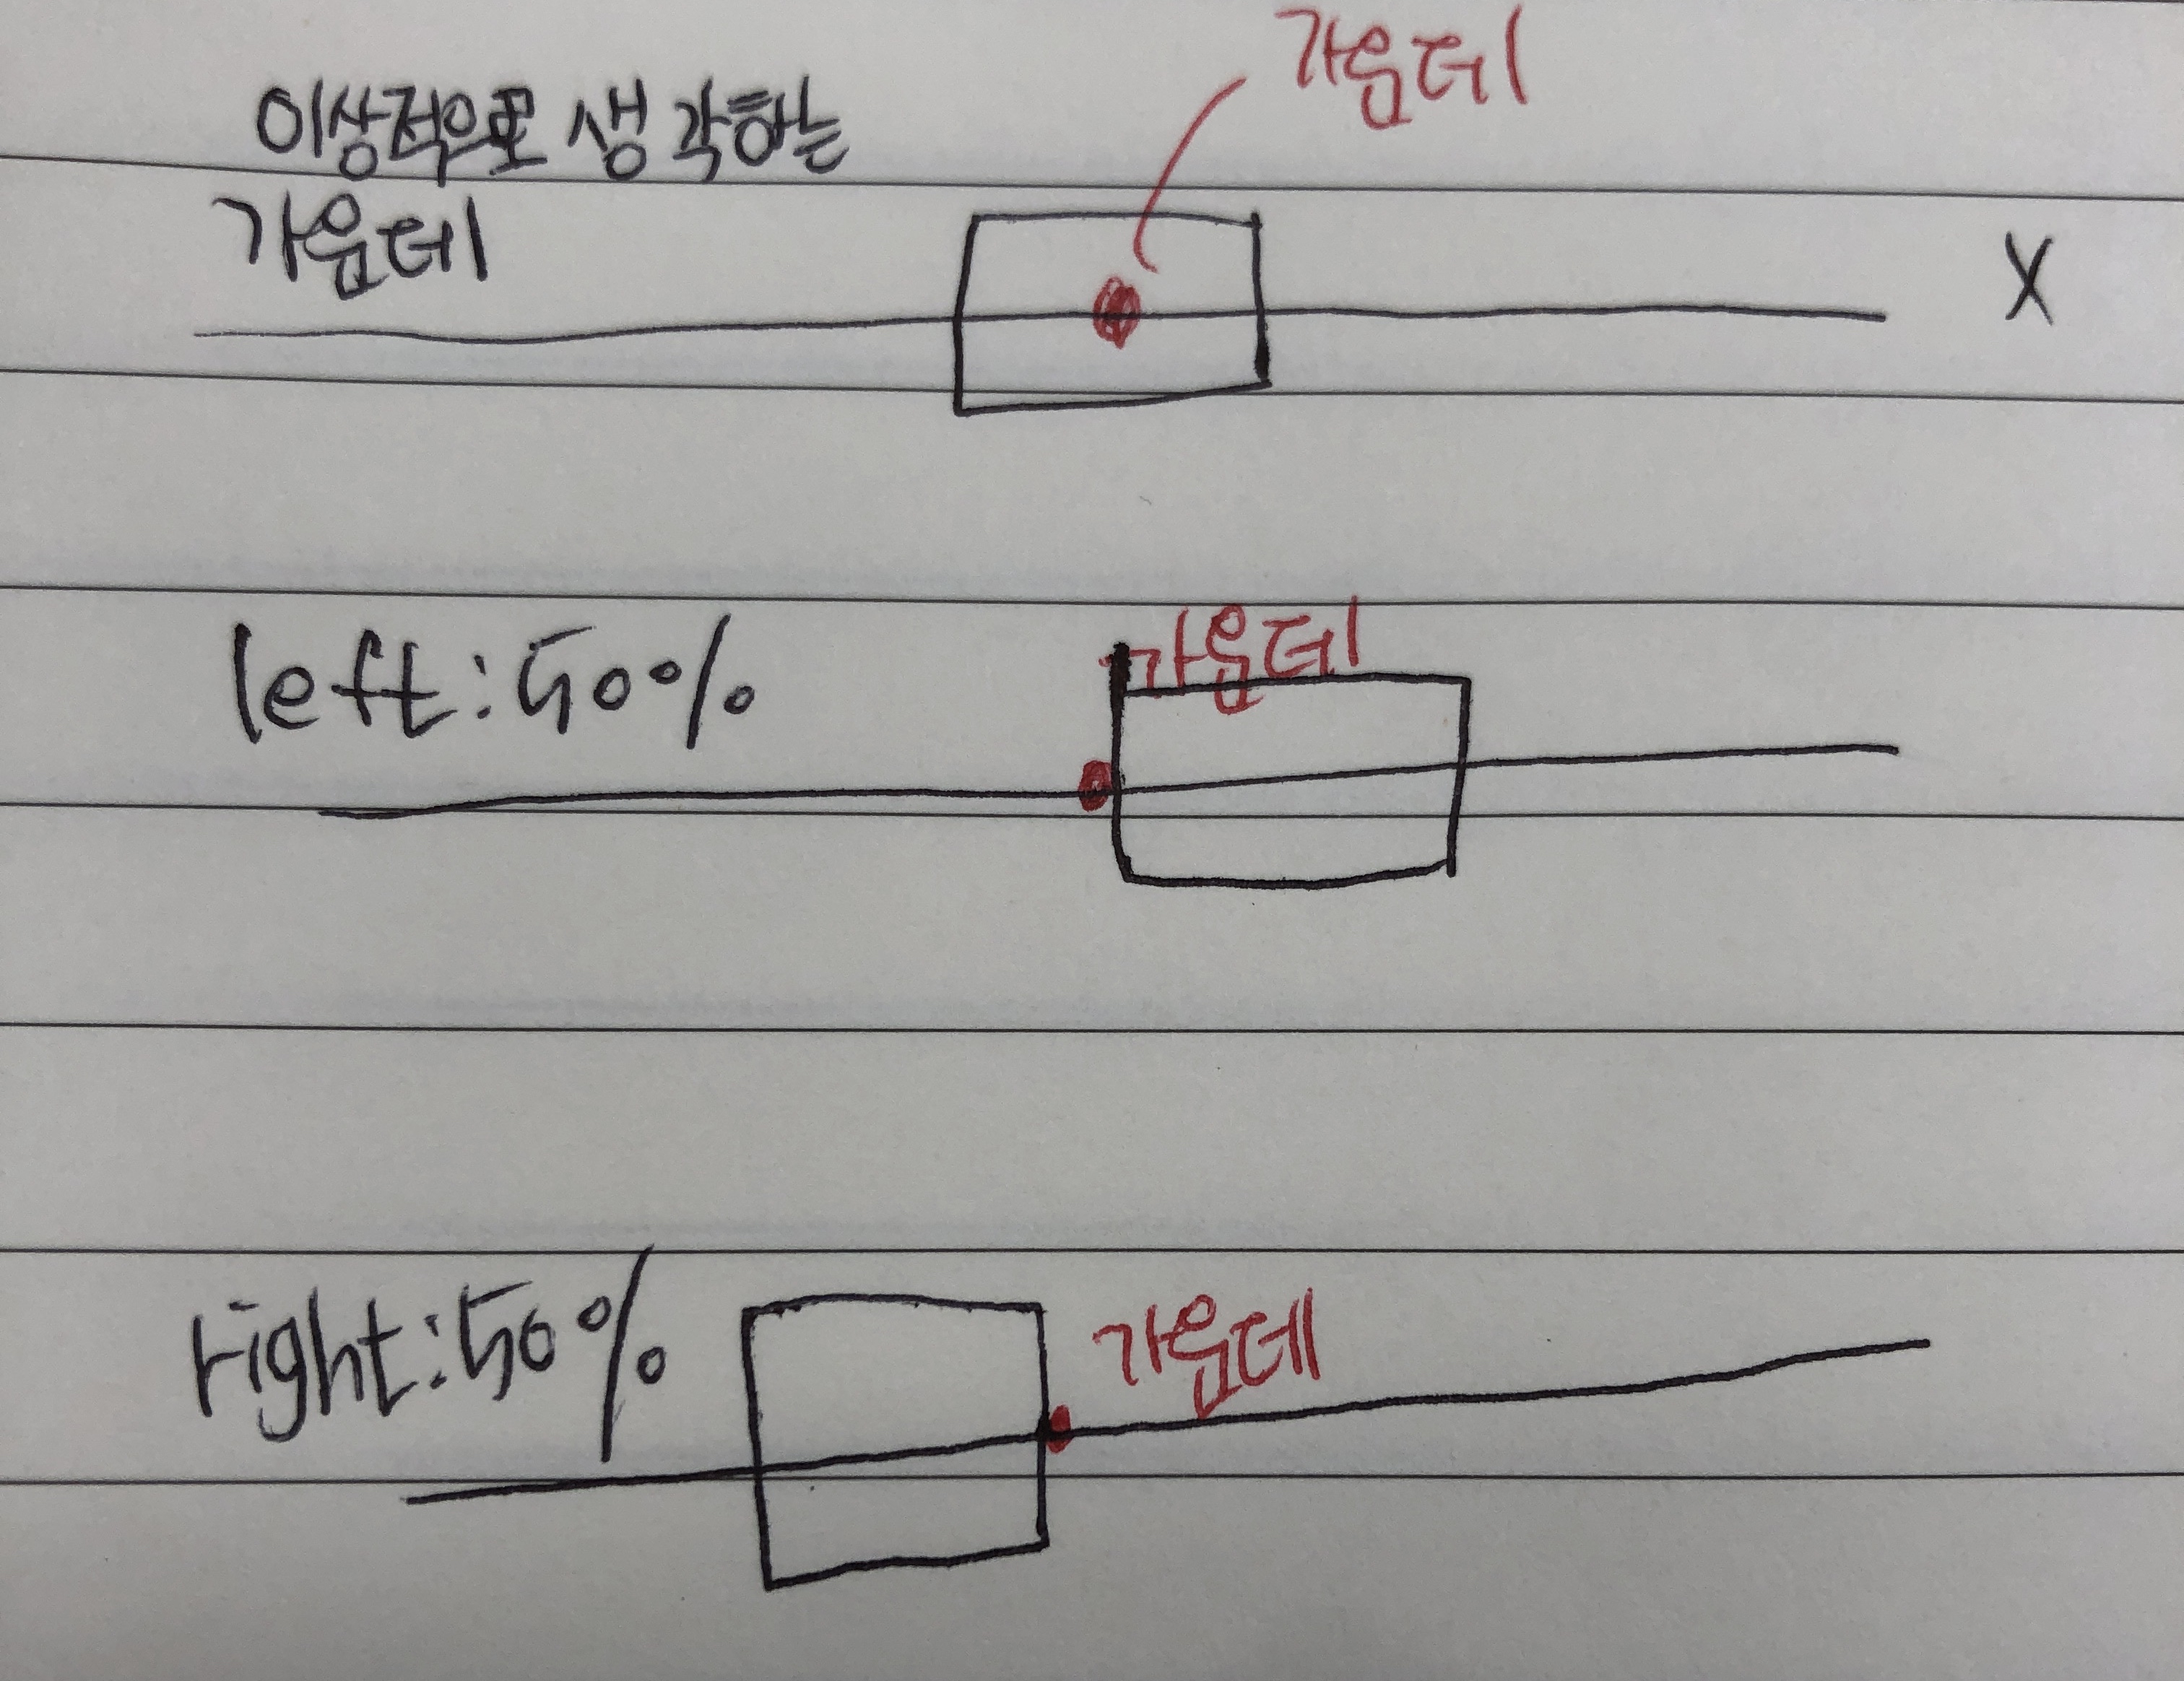 가운데
이상적으로 생각하는
가운데
X
left:50%
가운데
right:50%
가운데